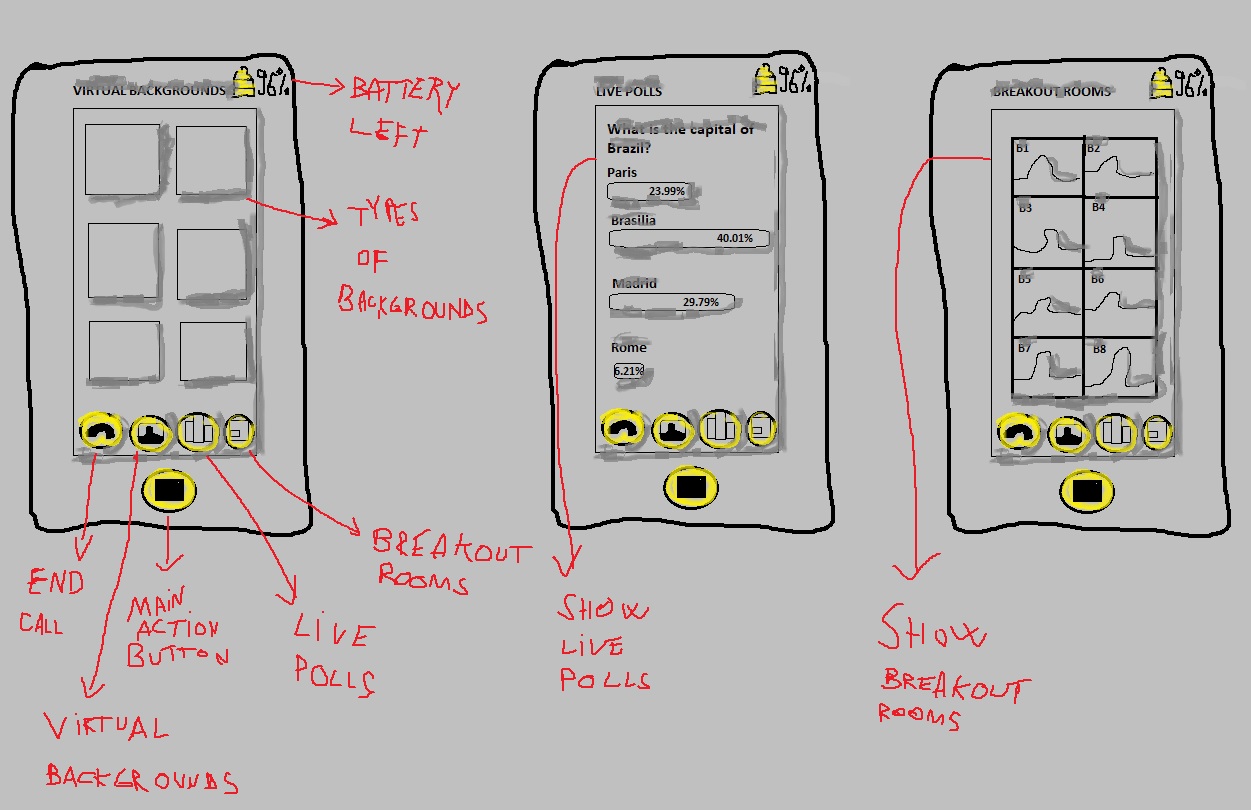 VIRTUAL BACKGROUNDS
96%
BATTERY
LEFT
TYPES
OF
BACKGROUNDS
END
CALL
MAIN
ACTION
BUTTON
VIRTUAL
BACKGROUNDS
LIVE
POLLS
BREAKOUT
ROOMS
LIVE POLLS
96%
What is the capital of
Brazil?
Paris
23.99%
Brasilia
40.01%
Madrid
29.79%
Rome
6.21%
SHOW
LIVE
POLLS
BREAKOUT ROOMS
96%
B1 B2
B3 B4
B5 B6
B7 B8
SHOW
BREAKOUT
ROOMS